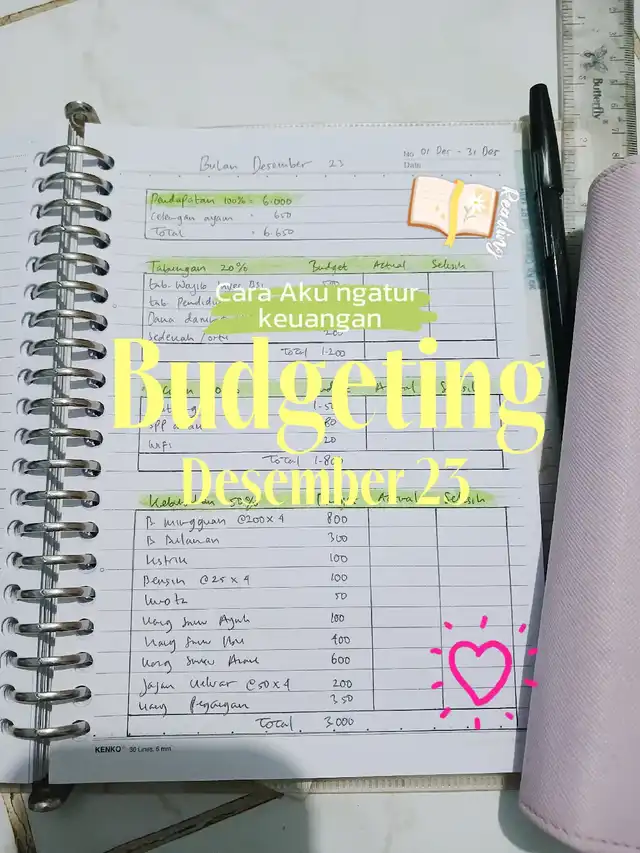 Bulan Desember 23
No 01 Des - 31 Des
Date
Pendapatan 100% = 6.000
Celengan ayam = 650
Total = 6.650
Reading
Tabungan 20% Budget Actual Selisih
tab. Wajib BSI
tab Pendidi
Dana daru
Cara Aku ngatur
keuangan
Sedekah/ortu 200
Total 1.200
Budgeting
SPP 80
Wifi 20
Total 1.80
Desember 23
Kebutuhan 50% Actual Selisih
B Mingguan @200 x 4 800
B Bulanan 300
Listrik 100
Bensin @25 x 4 100
Kuota 50
Uang Saku Ayah 100
Uang Saku Ibu 400
Uang Saku Anak 600
Jajan Keluar @50 x 4 200
Uang Pegangan 350
Total 3.000
KENKO 30 Lines, 6 mm
Butterfly